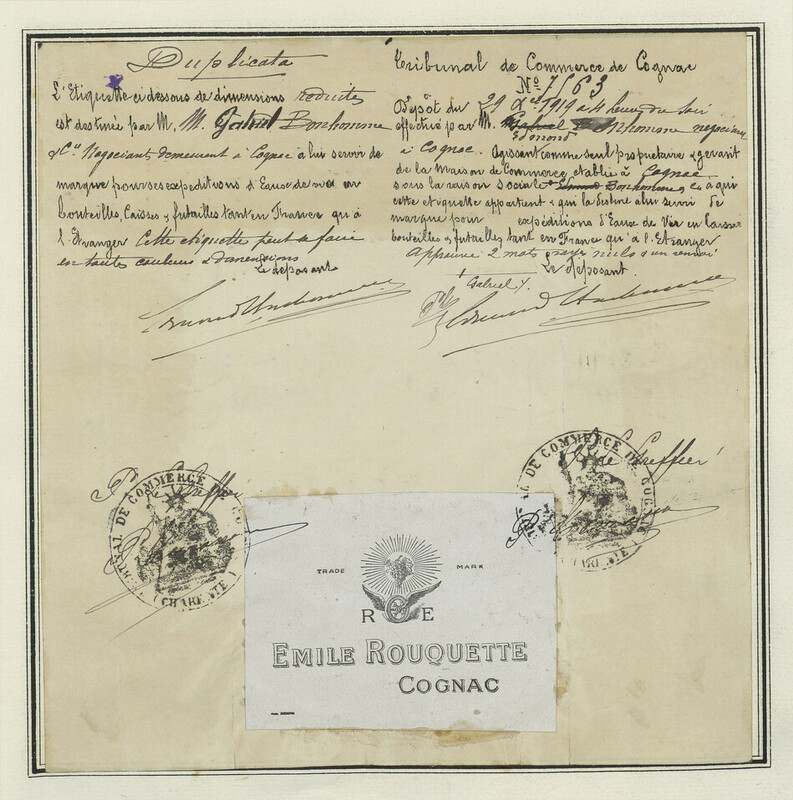 Duplicata
L'Etiquette ci dessous de dimensions reduites
est destinée par M. M. Gabriel Bonhomme
& Cie Negociant demeurant à Cognac a lui servir de
marque pour ses expeditions d'Eaux de vie en
bouteilles, Caisses & futailles tant en France qu'à
l'Etranger Cette etiquette peut se faire
en toutes couleurs & dimensions
Le deposant
Tribunal de Commerce de Cognac
No 7563
Dépôt du 29 Xbre 1919 a 4 heures du soir
effectué par M. Gabriel Bonhomme negociant
Edmond
à Cognac. Agissant comme seul propriétaire & gerant
de la Maison de Commerce etablie à Cognac
sous la raison sociale Edmond Bonhomme & Co a qui
cette etiquette appartient & qui la destine a lui servir de
marque pour expéditions d'Eaux de Vie en Caisses
bouteilles & futailles tant en France qu'à l'Etranger
Approuvé 2 mots rayés nuls & un renvoi
Le deposant.
(Gabriel).
Edmond Bonhomme
Edmond Bonhomme
Pr Le Greffier
Le Greffier
TRIBUNAL DE COMMERCE DE COGNAC
(CHARENTE)
TRIBUNAL DE COMMERCE DE COGNAC
(CHARENTE)
TRADE MARK
R E
EMILE ROUQUETTE
COGNAC